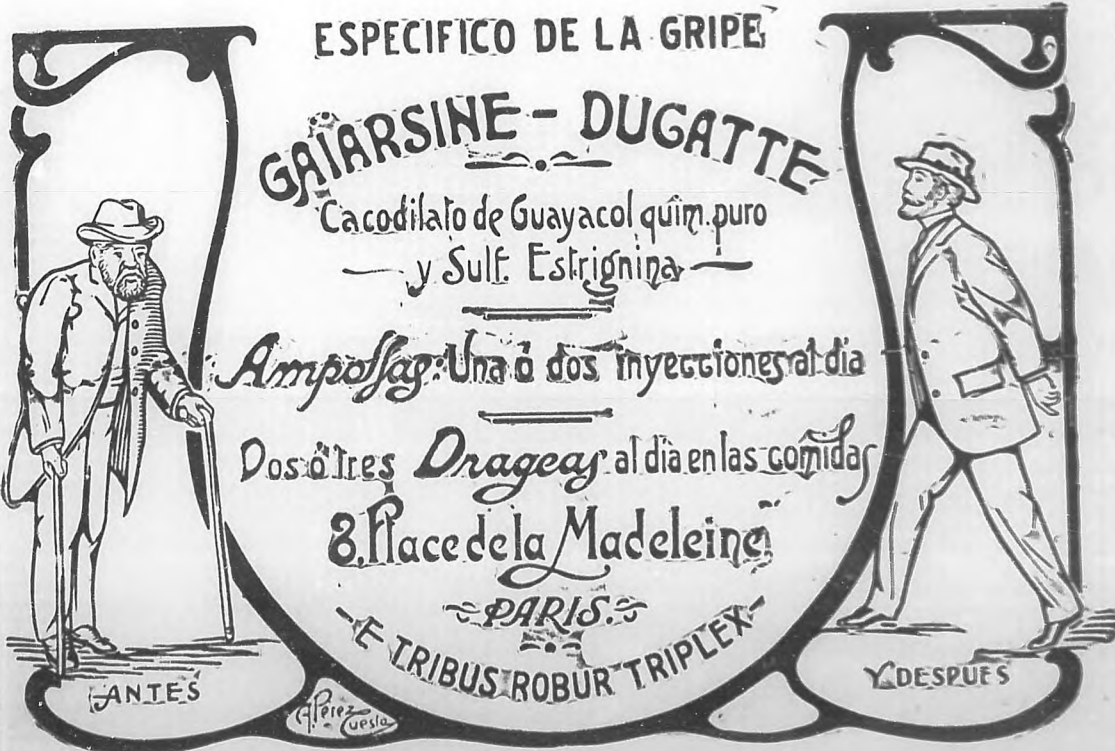 ESPECIFICO DE LA GRIPE
GAIARSINE - DUGATTE
Cacodilato de Guayacol quim. puro
y Sulf. Estrignina
Ampollas: Una ó dos inyecciones al dia
Dos ó tres Drageas al dia en las comidas
8, Place de la Madeleine,
PARIS.
E TRIBUS ROBUR TRIPLEX
ANTES
Y DESPUES
A. Pérez Cuesta